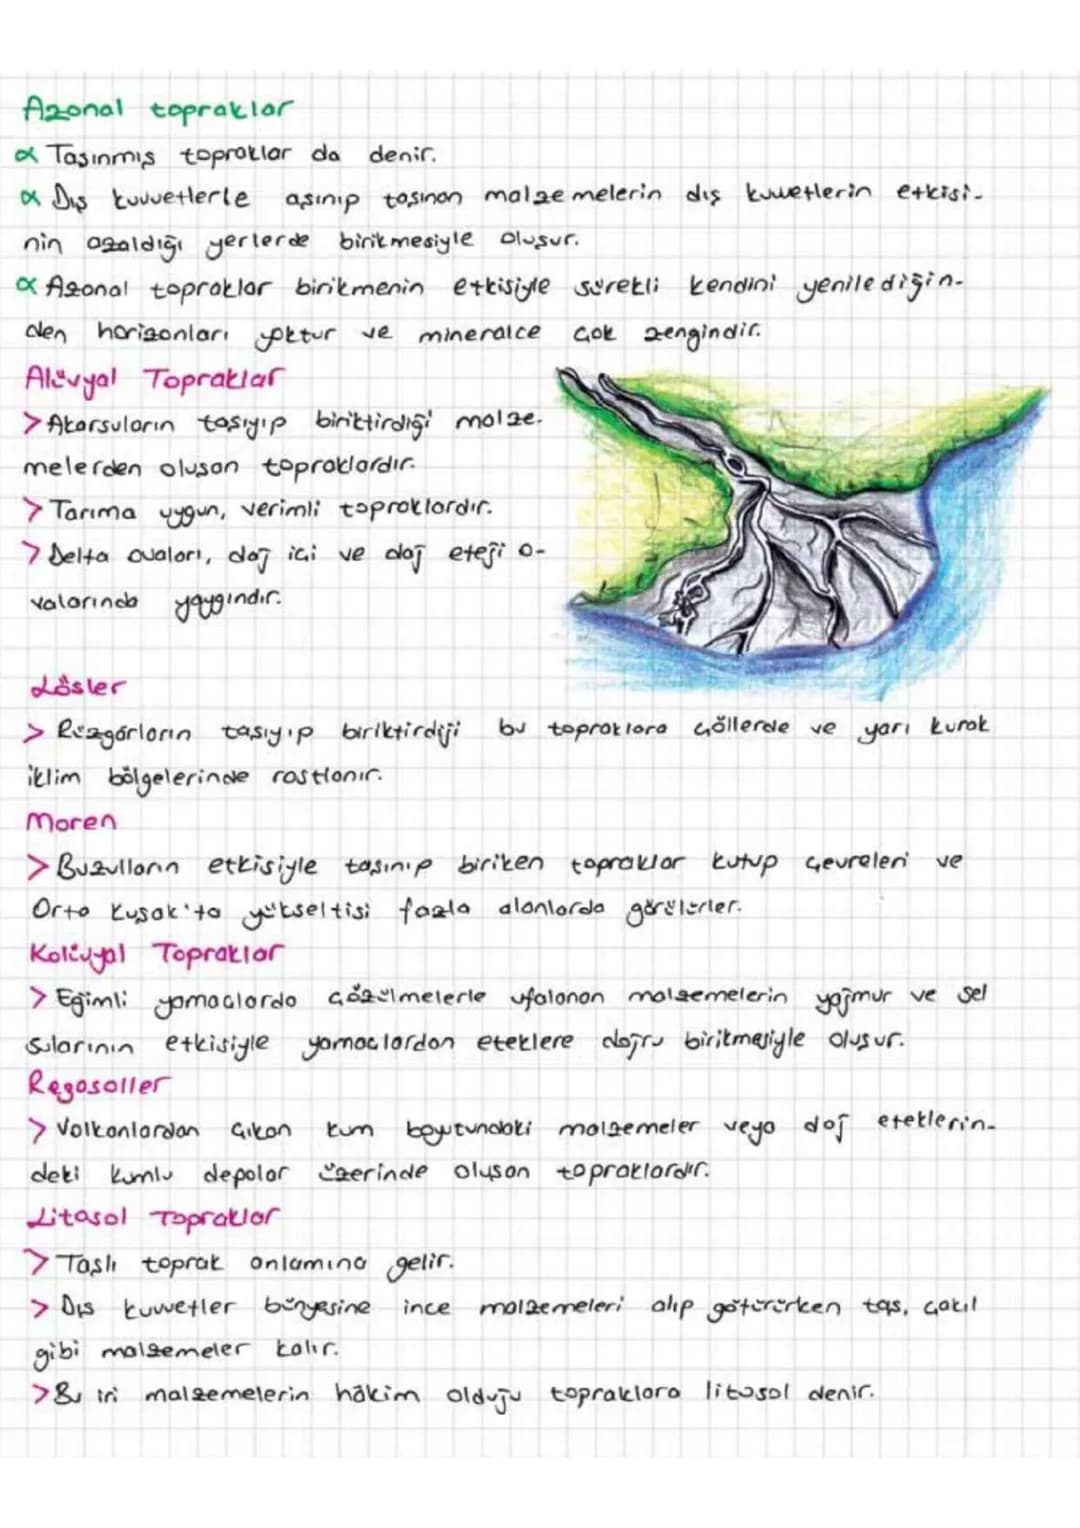 Azonal topraklar
α Taşınmış topraklar da denir.
α Dış kuvvetlerle aşınıp taşınan malzemelerin dış kuvvetlerin etkisi-
nin azaldığı yerlerde birikmesiyle oluşur.
α Azonal topraklar birikmenin etkisiyle sürekli kendini yenilediğin-
den horizonları yoktur ve mineralce çok zengindir.
Alüvyal Topraklar
> Akarsuların taşıyıp biriktirdiği malze-
melerden oluşan topraklardır.
> Tarıma uygun, verimli topraklardır.
> Delta ovaları, dağ içi ve dağ eteği o-
valarında yaygındır.
Lösler
> Rüzgârların taşıyıp biriktirdiği bu topraklara çöllerde ve yarı kurak
iklim bölgelerinde rastlanır.
Moren
> Buzulların etkisiyle taşınıp biriken topraklar kutup çevreleri ve
Orta Kuşak'ta yükseltisi fazla alanlarda görülürler.
Kolüvyal Topraklar
> Eğimli yamaçlarda çözülmelerle ufalanan malzemelerin yağmur ve sel
sularının etkisiyle yamaçlardan eteklere doğru birikmesiyle oluşur.
Regosoller
> Volkanlardan çıkan kum boyutundaki malzemeler veya dağ eteklerin-
deki kumlu depolar üzerinde oluşan topraklardır.
Litosol Topraklar
> Taşlı toprak anlamına gelir.
> Dış kuvvetler bünyesine ince malzemeleri alıp götürürken taş, çakıl
gibi malzemeler kalır.
> Bu iri malzemelerin hâkim olduğu topraklara litosol denir.